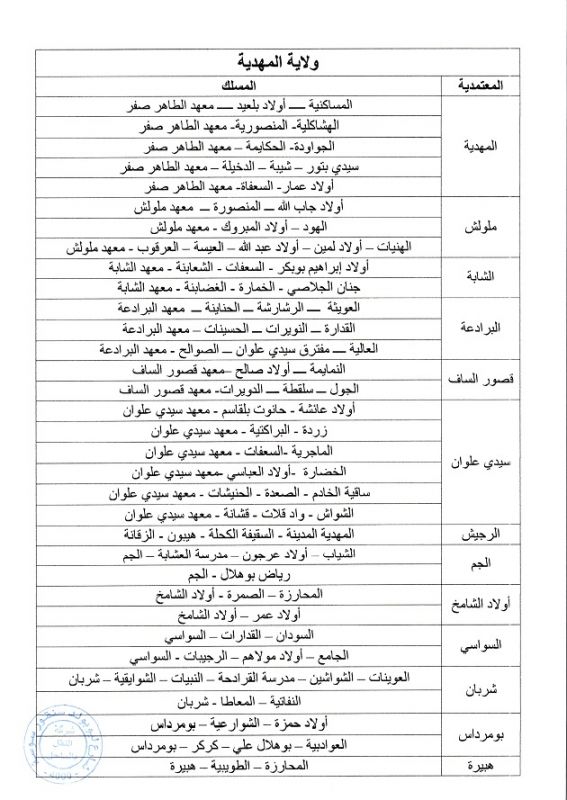 ولاية المهدية
المعتمدية المسلك
المهدية
المساكنية – أولاد بلعيد – معهد الطاهر صفر
الهشاكلية- المنصورية- معهد الطاهر صفر
الجواودة- الحكايمة – معهد الطاهر صفر
سيدي بتور – شيبة – الدخيلة – معهد الطاهر صفر
أولاد عمار- السعفاة- معهد الطاهر صفر
ملولش
أولاد جاب الله – المنصورة – معهد ملولش
الهود – أولاد المبروك - معهد ملولش
الهنيات – أولاد لمين – أولاد عبد الله – العيسة – العرقوب - معهد ملولش
الشابة
أولاد إبراهيم بوبكر - السعفات - الشعابنة - معهد الشابة
جنان الجلاصي - الخمارة - الغضابنة - معهد الشابة
البرادعة
العويثة – الرشارشة – الحناينة – معهد البرادعة
القدارة – النويرات – الحسينات – معهد البرادعة
العالية – مفترق سيدي علوان – الصوالح - معهد البرادعة
قصور الساف
النمايمة – أولاد صالح –معهد قصور الساف
الجول – سلقطة – الدويرات- معهد قصور الساف
سيدي علوان
أولاد عائشة - حانوت بلقاسم - معهد سيدي علوان
زردة - البراكتية - معهد سيدي علوان
الماجرية -السعفات - معهد سيدي علوان
الخضارة -أولاد العباسي -معهد سيدي علوان
ساقية الخادم - الصعدة - الحنيشات - معهد سيدي علوان
الشواش - واد قلات - قشانة - معهد سيدي علوان
الرجيش
المهدية المدينة - السقيفة الكحلة - هيبون - الزقانة
الجم
الشياب – أولاد عرجون – مدرسة العشابة – الجم
رياض بوهلال - الجم
أولاد الشامخ
المحارزة – الصمرة - أولاد الشامخ
أولاد عمر – أولاد الشامخ
السواسي
السودان – القدارات - السواسي
الجامع – أولاد مولاهم – الرجيبات - السواسي
شربان
العوينات – الشواشين – مدرسة القرادحة – النبيات – الشوايقية – شربان
النفاتية - المعاطا - شربان
بومرداس
أولاد حمزة – الشوارعية – بومرداس
العوادبية – بوهلال علي – كركر – بومرداس
هبيرة
المحارزة – الطويبية – هبيرة